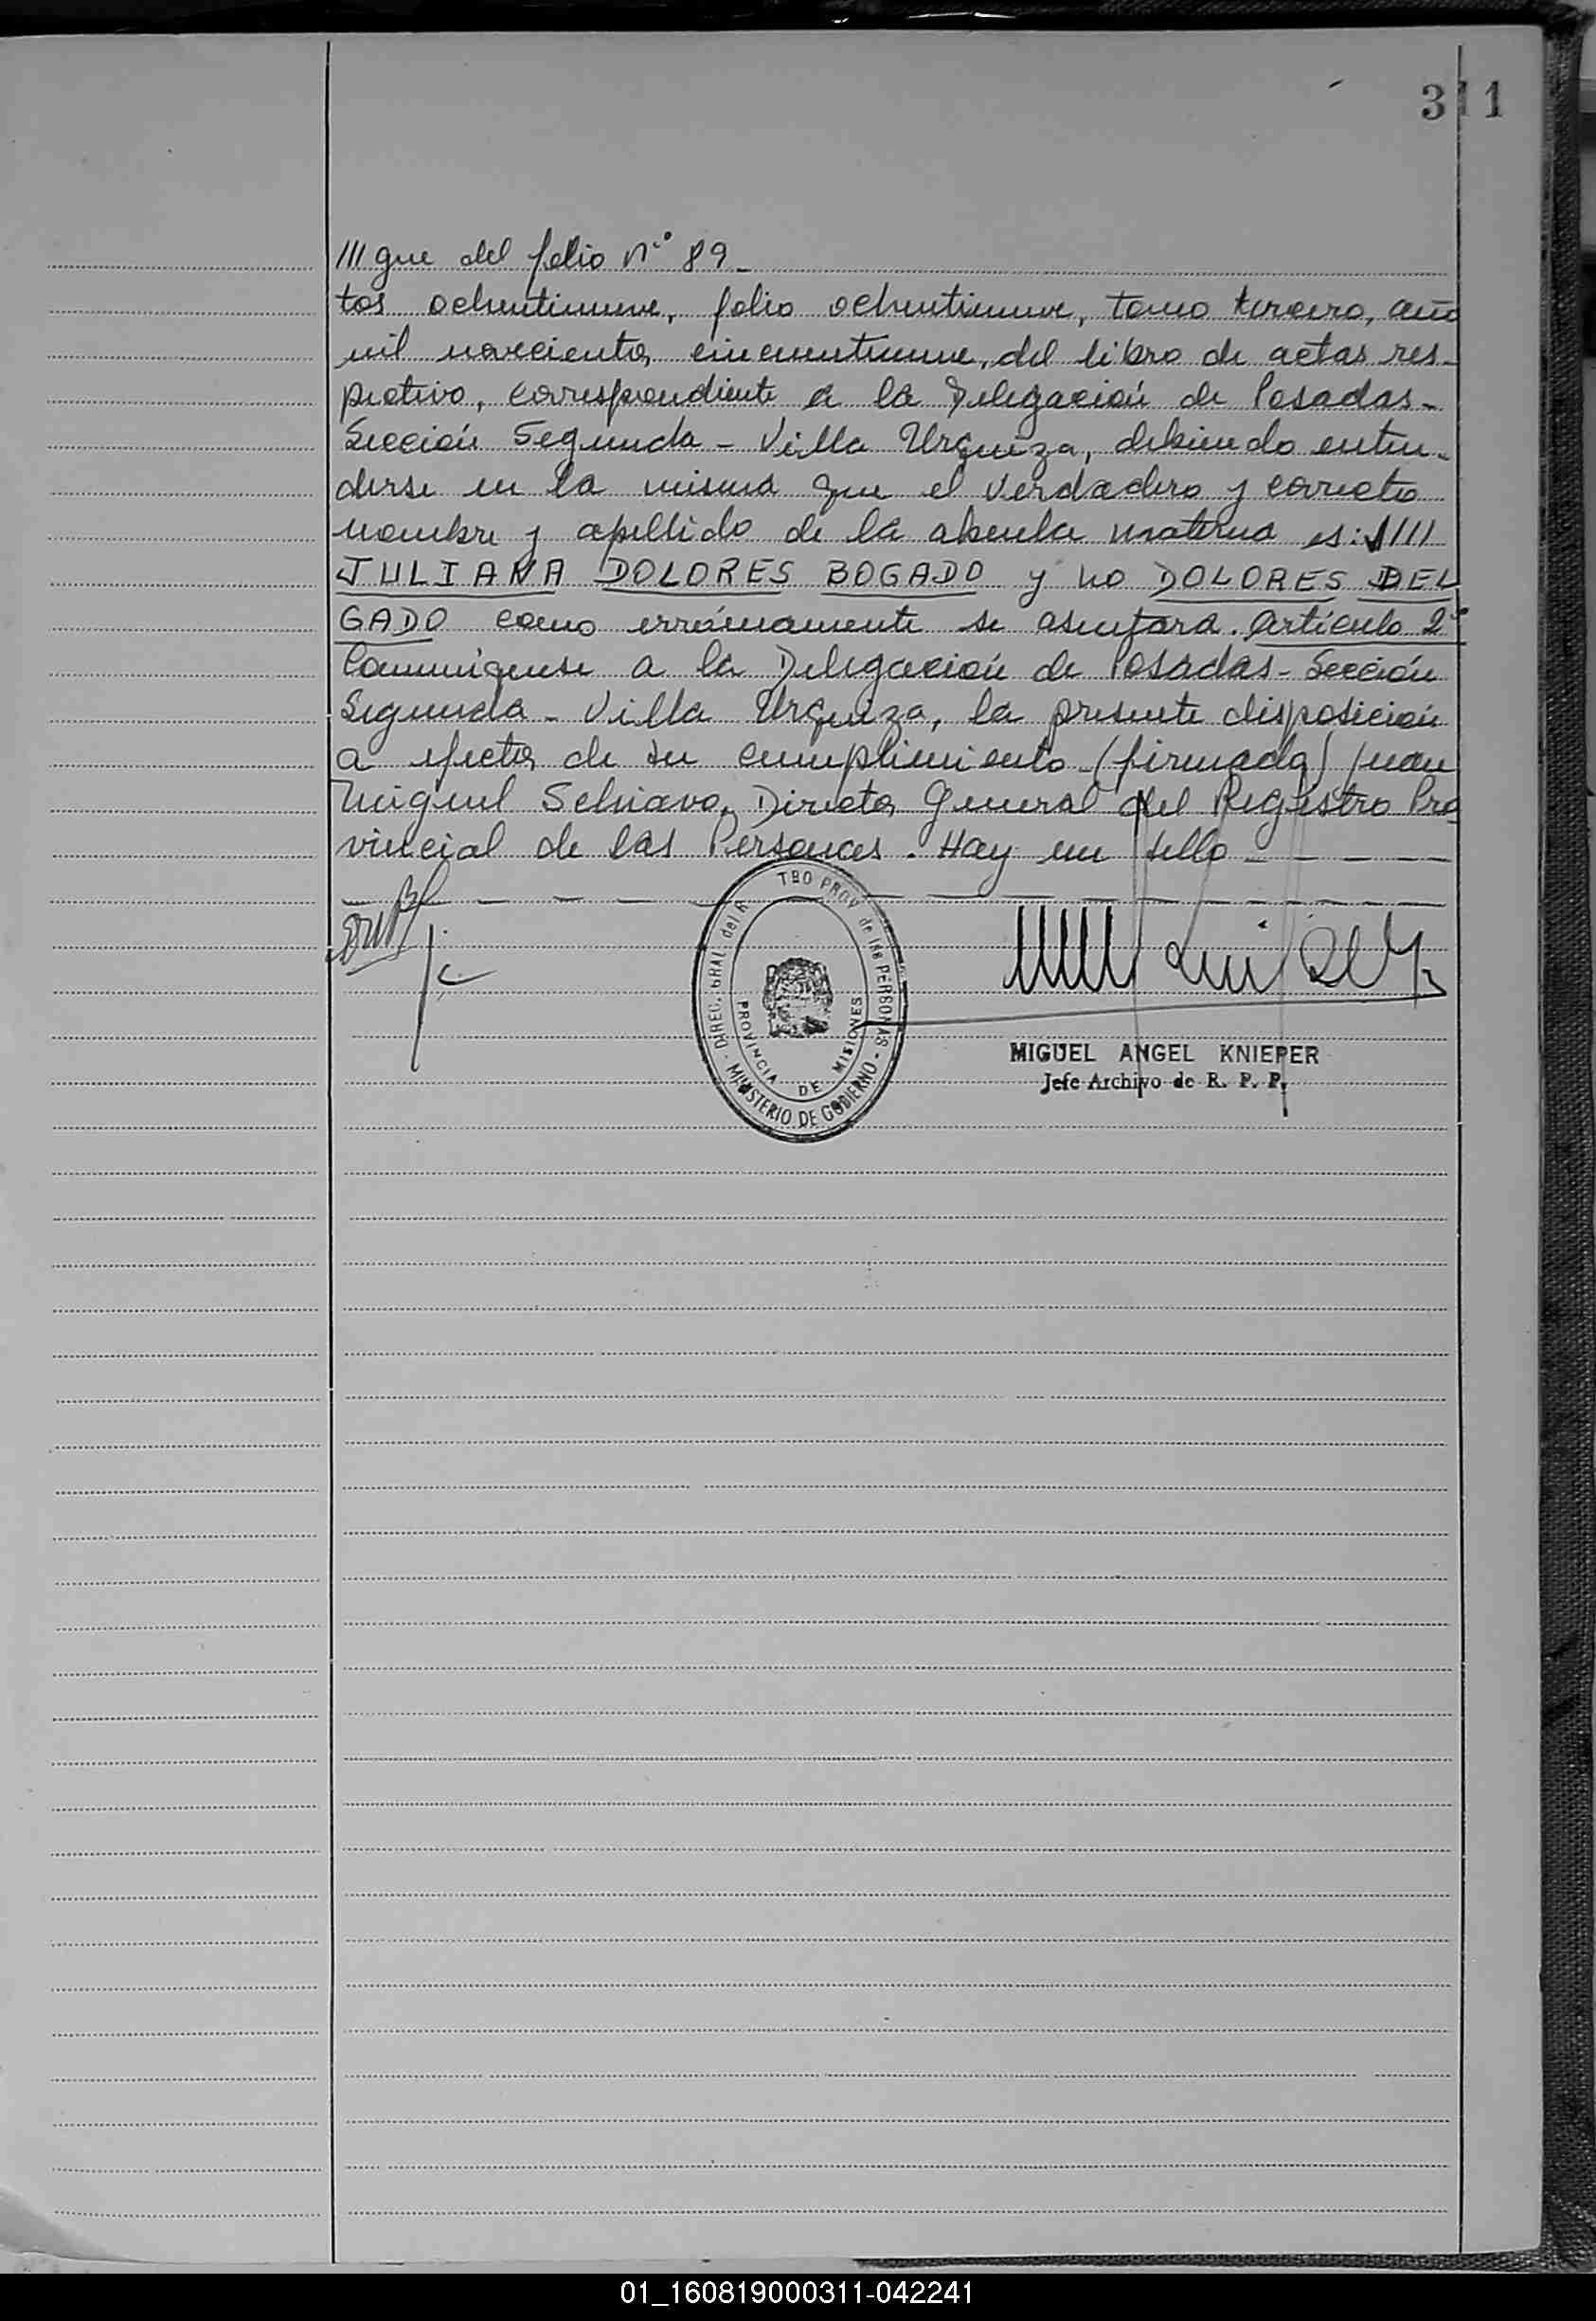 311
///gue del folio n° 89_
tos ochentinueve, folio ochentinueve, tomo tercero, año
mil novecientos cincuentinueve, del libro de actas res-
pectivo, correspondiente a la Delegación de Posadas-
Sección Segunda - Villa Urquiza, debiendo enten-
derse en la misma que el verdadero y correcto
nombre y apellido de la abuela materna es: ////
JULIANA DOLORES BOGADO y no DOLORES DEL
GADO como erróneamente se asentara. Artículo 2°
Comuníquese a la Delegación de Posadas - Sección
Segunda - Villa Urquiza, la presente disposición
a efectos de su cumplimiento (firmado) Juan
Miguel Schiavo, Director General del Registro Pro
vincial de las Personas. Hay un sello _ _ _ _
DIREC. GRAL del R TRO PROV de las PERSONAS - MINISTERIO DE GOBIERNO -
PROVINCIA DE MISIONES
MIGUEL ANGEL KNIEPER
Jefe Archivo de R. P. P.
01_160819000311-042241